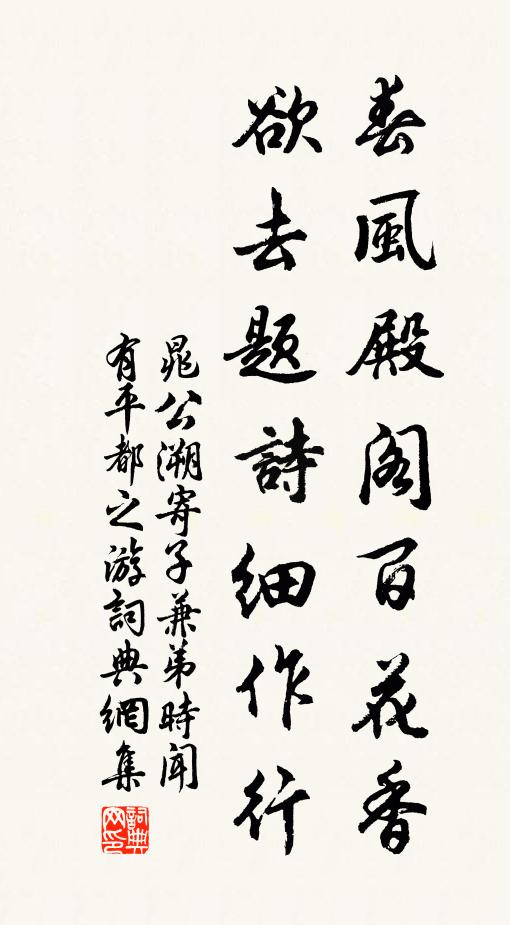 春風殿閣百花香
欲去題詩細作行
晁公溯寄子兼弟時聞
有平都之游詞典網集
詞典網印